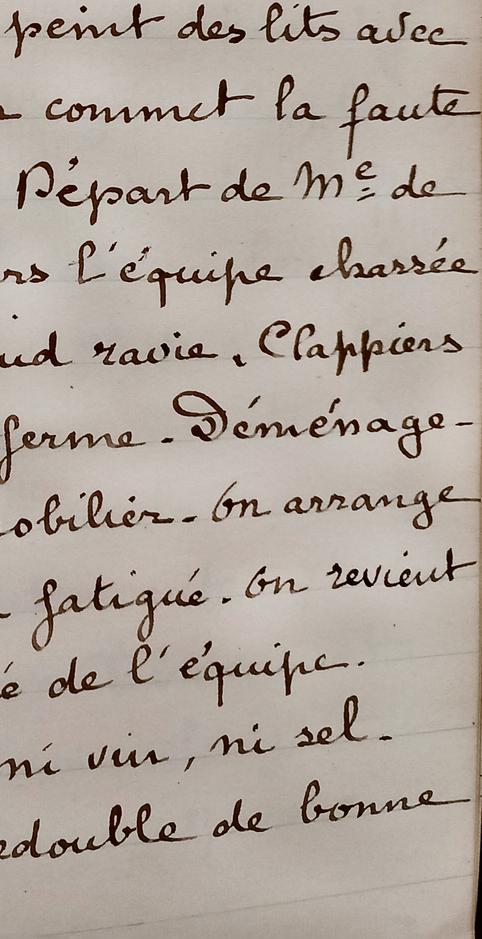 peint des lits avec
commet la faute
Départ de Me de
rs l'équipe chassée
ud ravie. Clappiers
ferme - Déménage-
obilier - On arrange
fatigué. On revient
é de l'équipe.
ni vin, ni sel -
edouble de bonne